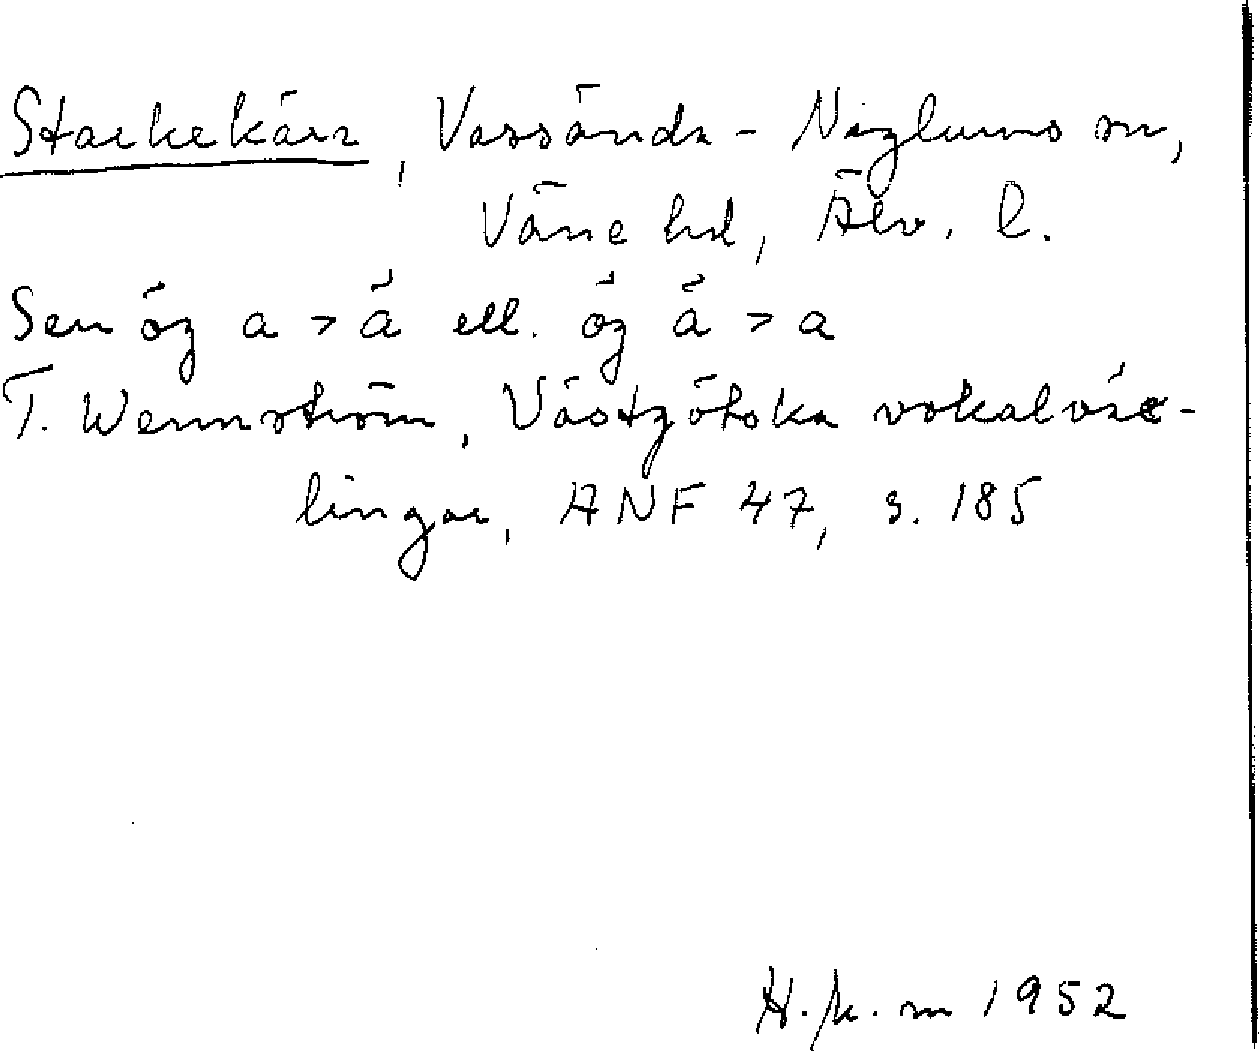 Starkekärr, Vassända-Naglums sn,
Väne hd, Älv. l.
Sen óg a > ä ell. óg ä > a
T. Wennström, Västgötska vokalväx-
lingar, ANF 47, s. 185
1952